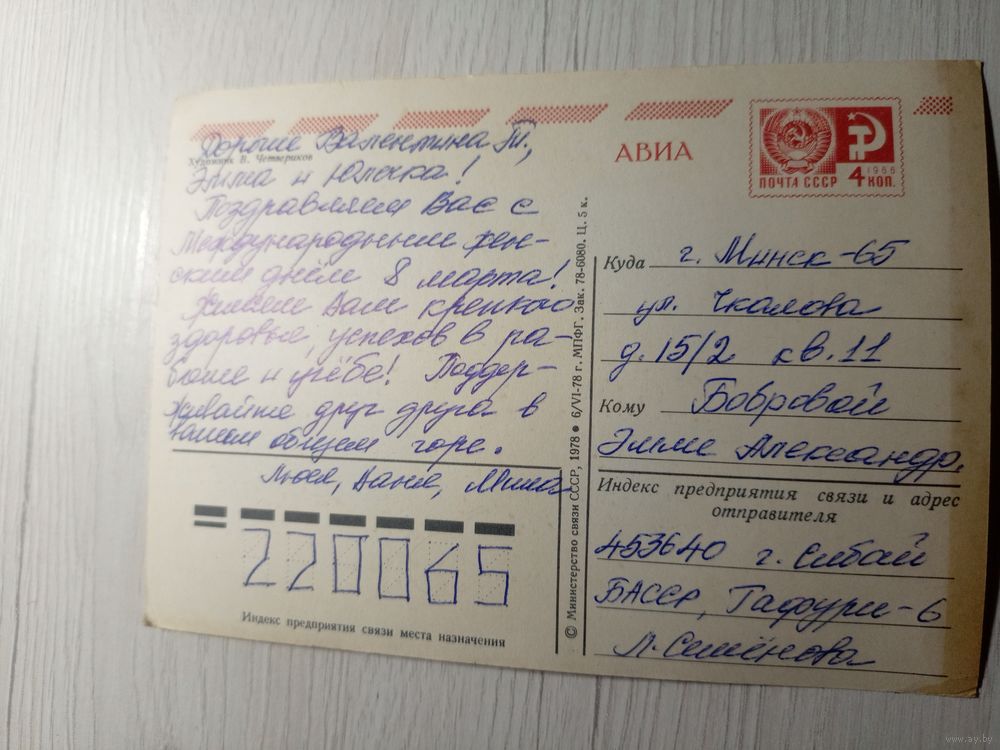 Дорогие Валентина М.,
Художник В. Четвериков
Эмма и Юлечка!
Поздравляем Вас с
Международным жен-
ским днём 8 марта!
Желаем Вам крепкого
здоровья, успехов в ра-
боте и учёбе! Поддер-
живайте друг друга в
нашем общем горе.
Люся, Ваня, Миша
220065
Индекс предприятия связи места назначения
© Министерство связи СССР, 1978 ● 6/VI-78 г. МПФГ. Зак. 78-6080. Ц. 5 к.
АВИА
ПОЧТА СССР 4 КОП.
1966
Куда г. Минск-65
ул. Чкалова
д. 15/2 кв. 11
Кому Бобровой
Эмме Александр.
Индекс предприятия связи и адрес
отправителя
453640 г. Сибай
БАССР, Гафури-6
Л. Семёнова
www.ay.by